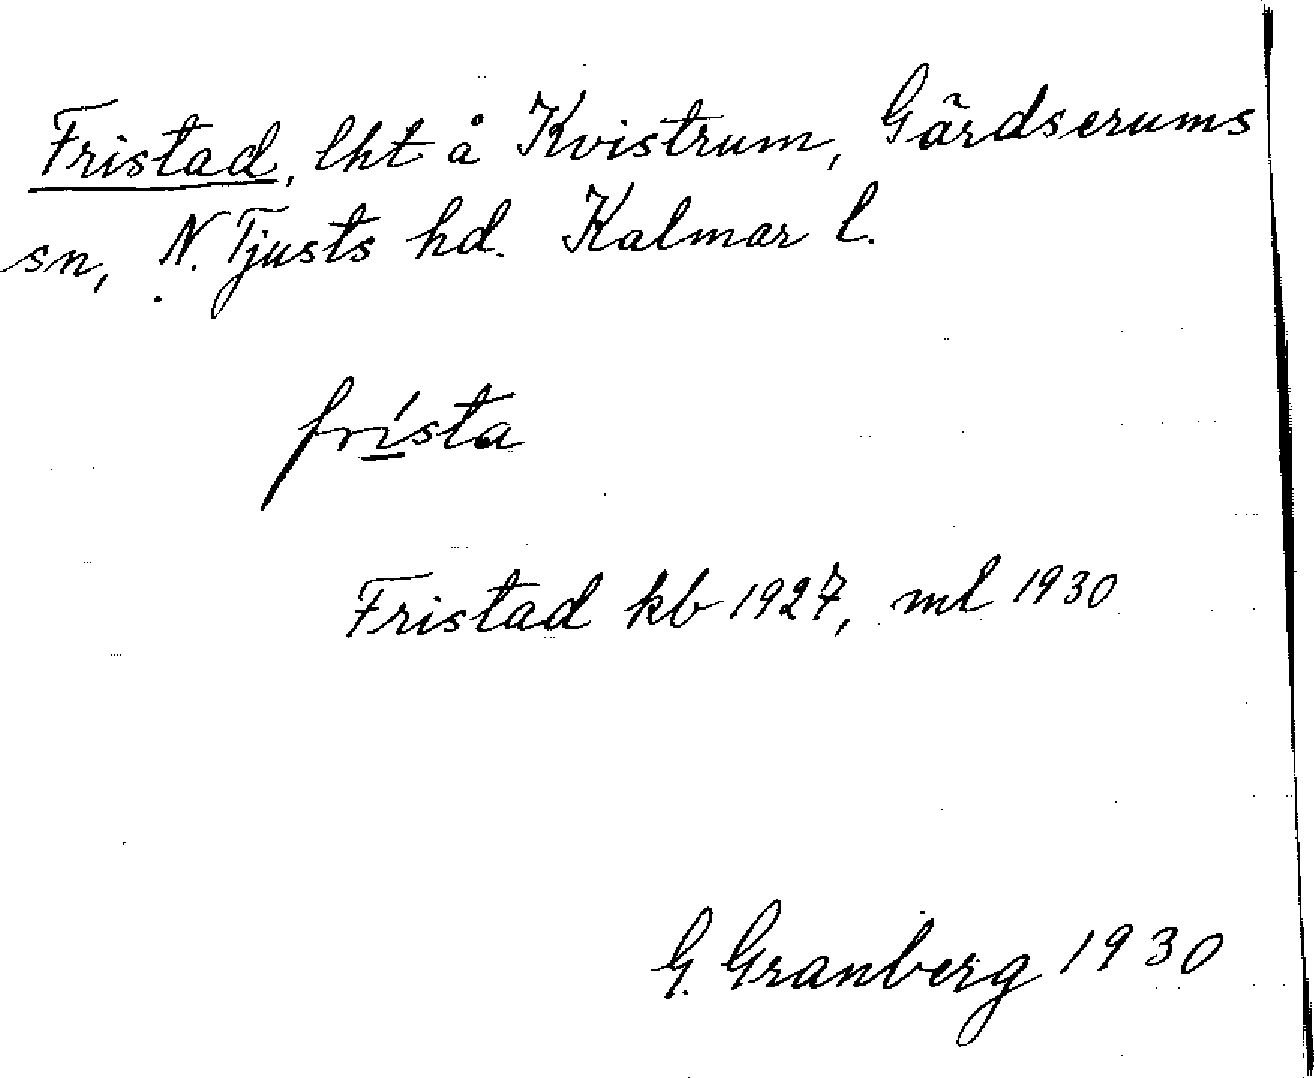 Fristad, lht å Kvistrum, Gärdserums
sn, N. Tjusts hd. Kalmar l.
frísta
Fristad kb 1927, ml 1930
G. Granberg 1930